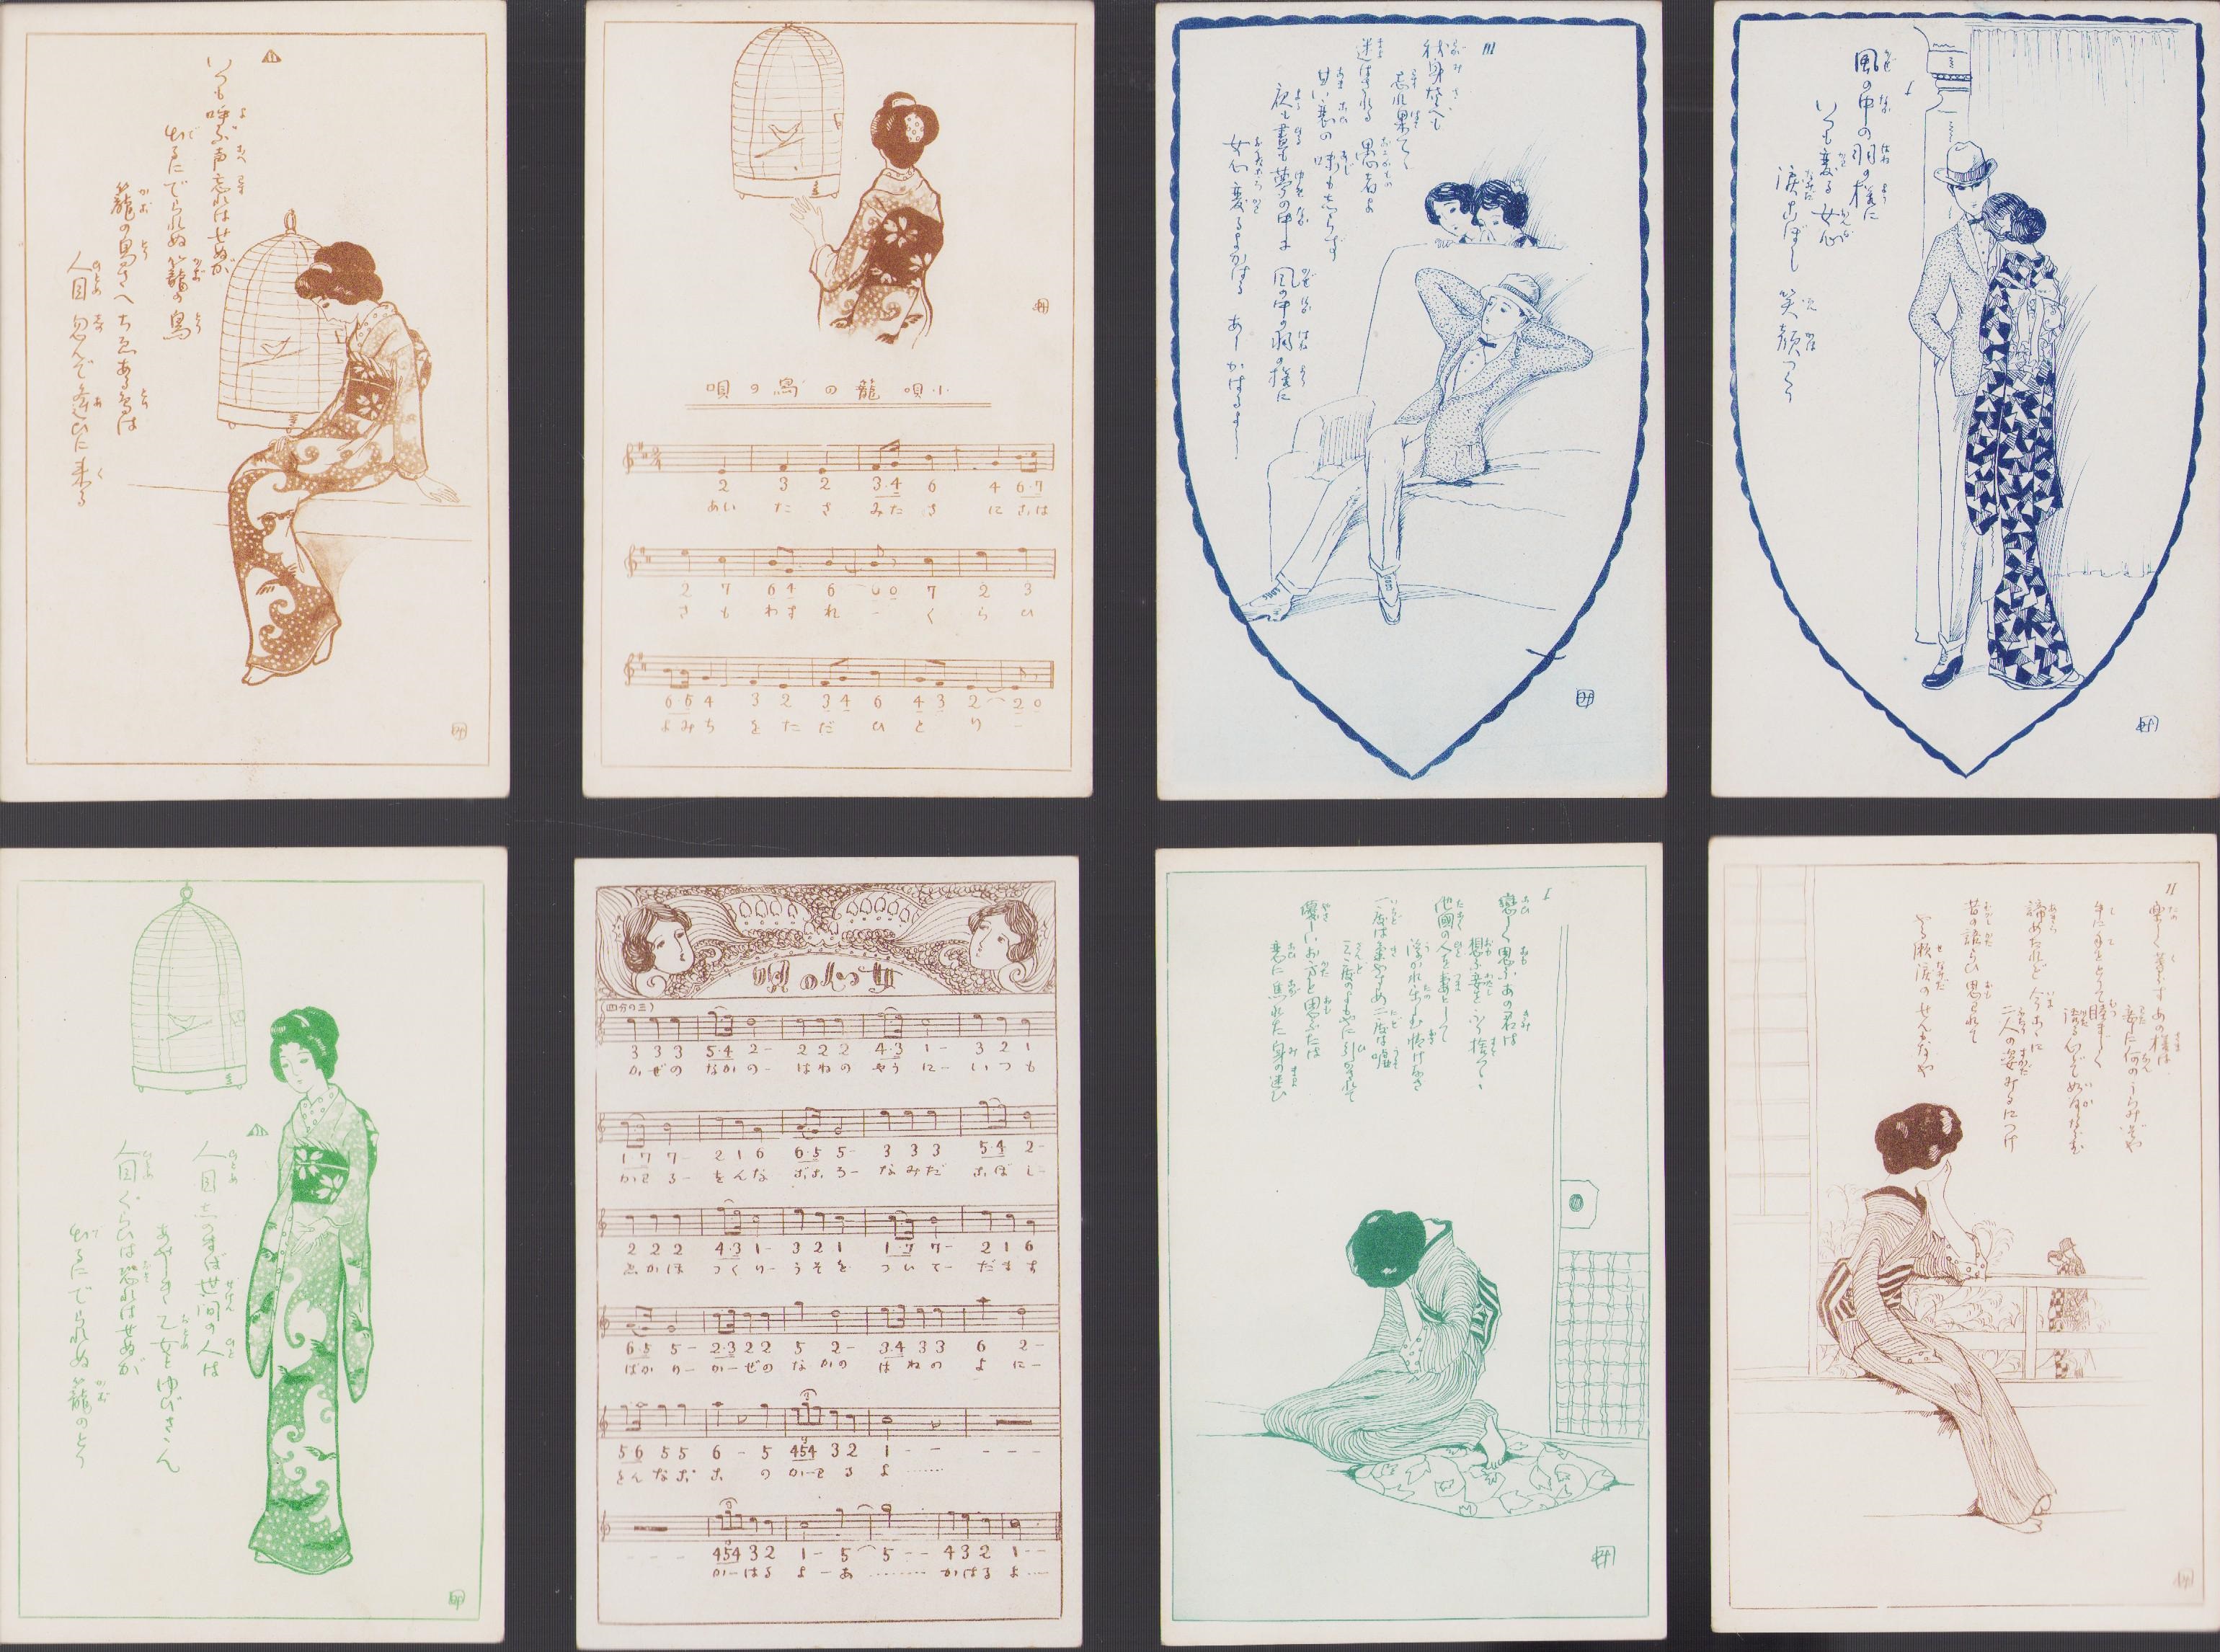 いつも呼ぶ声忘れはせぬが
出るにでられぬ籠の鳥
籠の鳥さへちゑある鳥は
人目忍んで逢ひに来る
小唄 籠の鳥の唄
2 3 2 3·4 6 4 6·7
あい た さ みた さ に こは
2 7 6 4 6 0 0 7 2 3
さ も わす れ - く ら ひ
6·5 4 3 2 3 4 6 4 3 2 2 0
よみ ち を た だ ひ と り -
III
我身さへも
忘れ果てゝ
迷はされる 愚者よ
甘い恋の味も志らず
夜も昼も夢の中よ 風の中の羽の様に
女心変るよかはる あーかはるよー
I
風の中の羽の様に
いつも変る女心
涙こぼし 笑顔つくり
人目志のばば世間の人は
あやしき乙女とゆびさん
人目ぐらひは恐れはせぬが
出るにでられぬ籠のとり
女心の唄
(四分の三)
3 3 3 5·4 2- 2 2 2 4·3 1- 3 2 1
かぜの なかの- はねの やう に- いつも
1 7 7- 2 1 6 6·5 5- 3 3 3 5·4 2-
かはる- をんな ごころ- なみだ こぼし-
2 2 2 4·3 1- 3 2 1 1·7 7- 2 1 6
ゑがほ つくり- うそを ついて- だます
6 5 5- 2·3 2 2 5 2- 3·4 3 3 6 2-
ばかり- か-ぜの なかの はねの よ に-
5 6 5 5 6 - 5 454 3 2 1 - - - - -
をんなご こ の か-はる よ ……
- - - 454 3 2 1- 5 5 - - 4 3 2 1--
か-はる よ -あ ……… かはる よ ……
I
恋しく思ふあの君は
想ふ妾をふり捨てゝ
他国の人を妻として
浮かれ楽しむ情けなさ
一度は柔かすめ二度は嘘
三度のまよひに引かされて
優しいお方と思ふたは
恋に馬れた身の迷ひ
II
楽しく暮すあの様は
妾に何のうらみぞや
手に手をとりて睦ましく
語る人ぞでぬがなほ
諦めたれど今こゝに
二人の姿みるにつけ
昔の語らひ思はれて
やる瀬涙のせんかなや